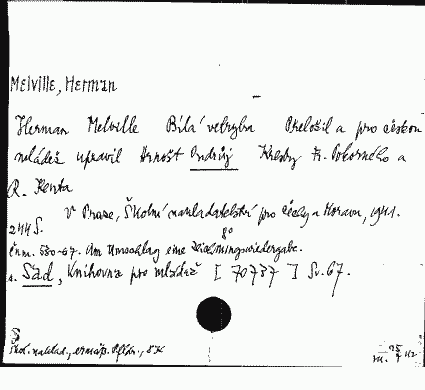 Melville, Herman
Herman Melville Bílá velryba Přeložil a pro českou
mládež upravil Arnošt Ondrůj Kresby Fr. Pokorného a
R. Kenta
V Praze, Školní nakladatelství pro Čechy a Moravu, 1941.
244 S. 8°
Čnm. 580-67. Am Umschlag eine Zeichnungswiedergabe.
s. Sad, Knihovna pro mládež [70737] Sv. 67.
S
Škol. naklad.,